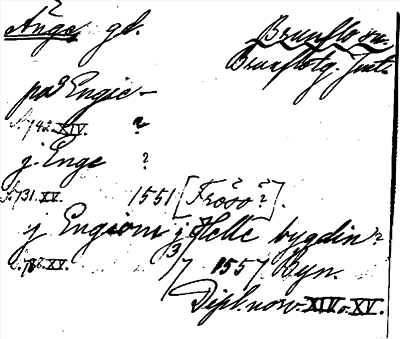 Ånge gd.
Brunflo sn.
Brunfloty. Jmtl.
paa Engie –
N. 742. XIV. ?
j. Enge ?
N. 731. XV. 1551 [Frösö?].
j Engiom j Helle bygdin?
N. 786. XV. 3/7 1557 Byn.
Dipl. norv. XIV o. XV.